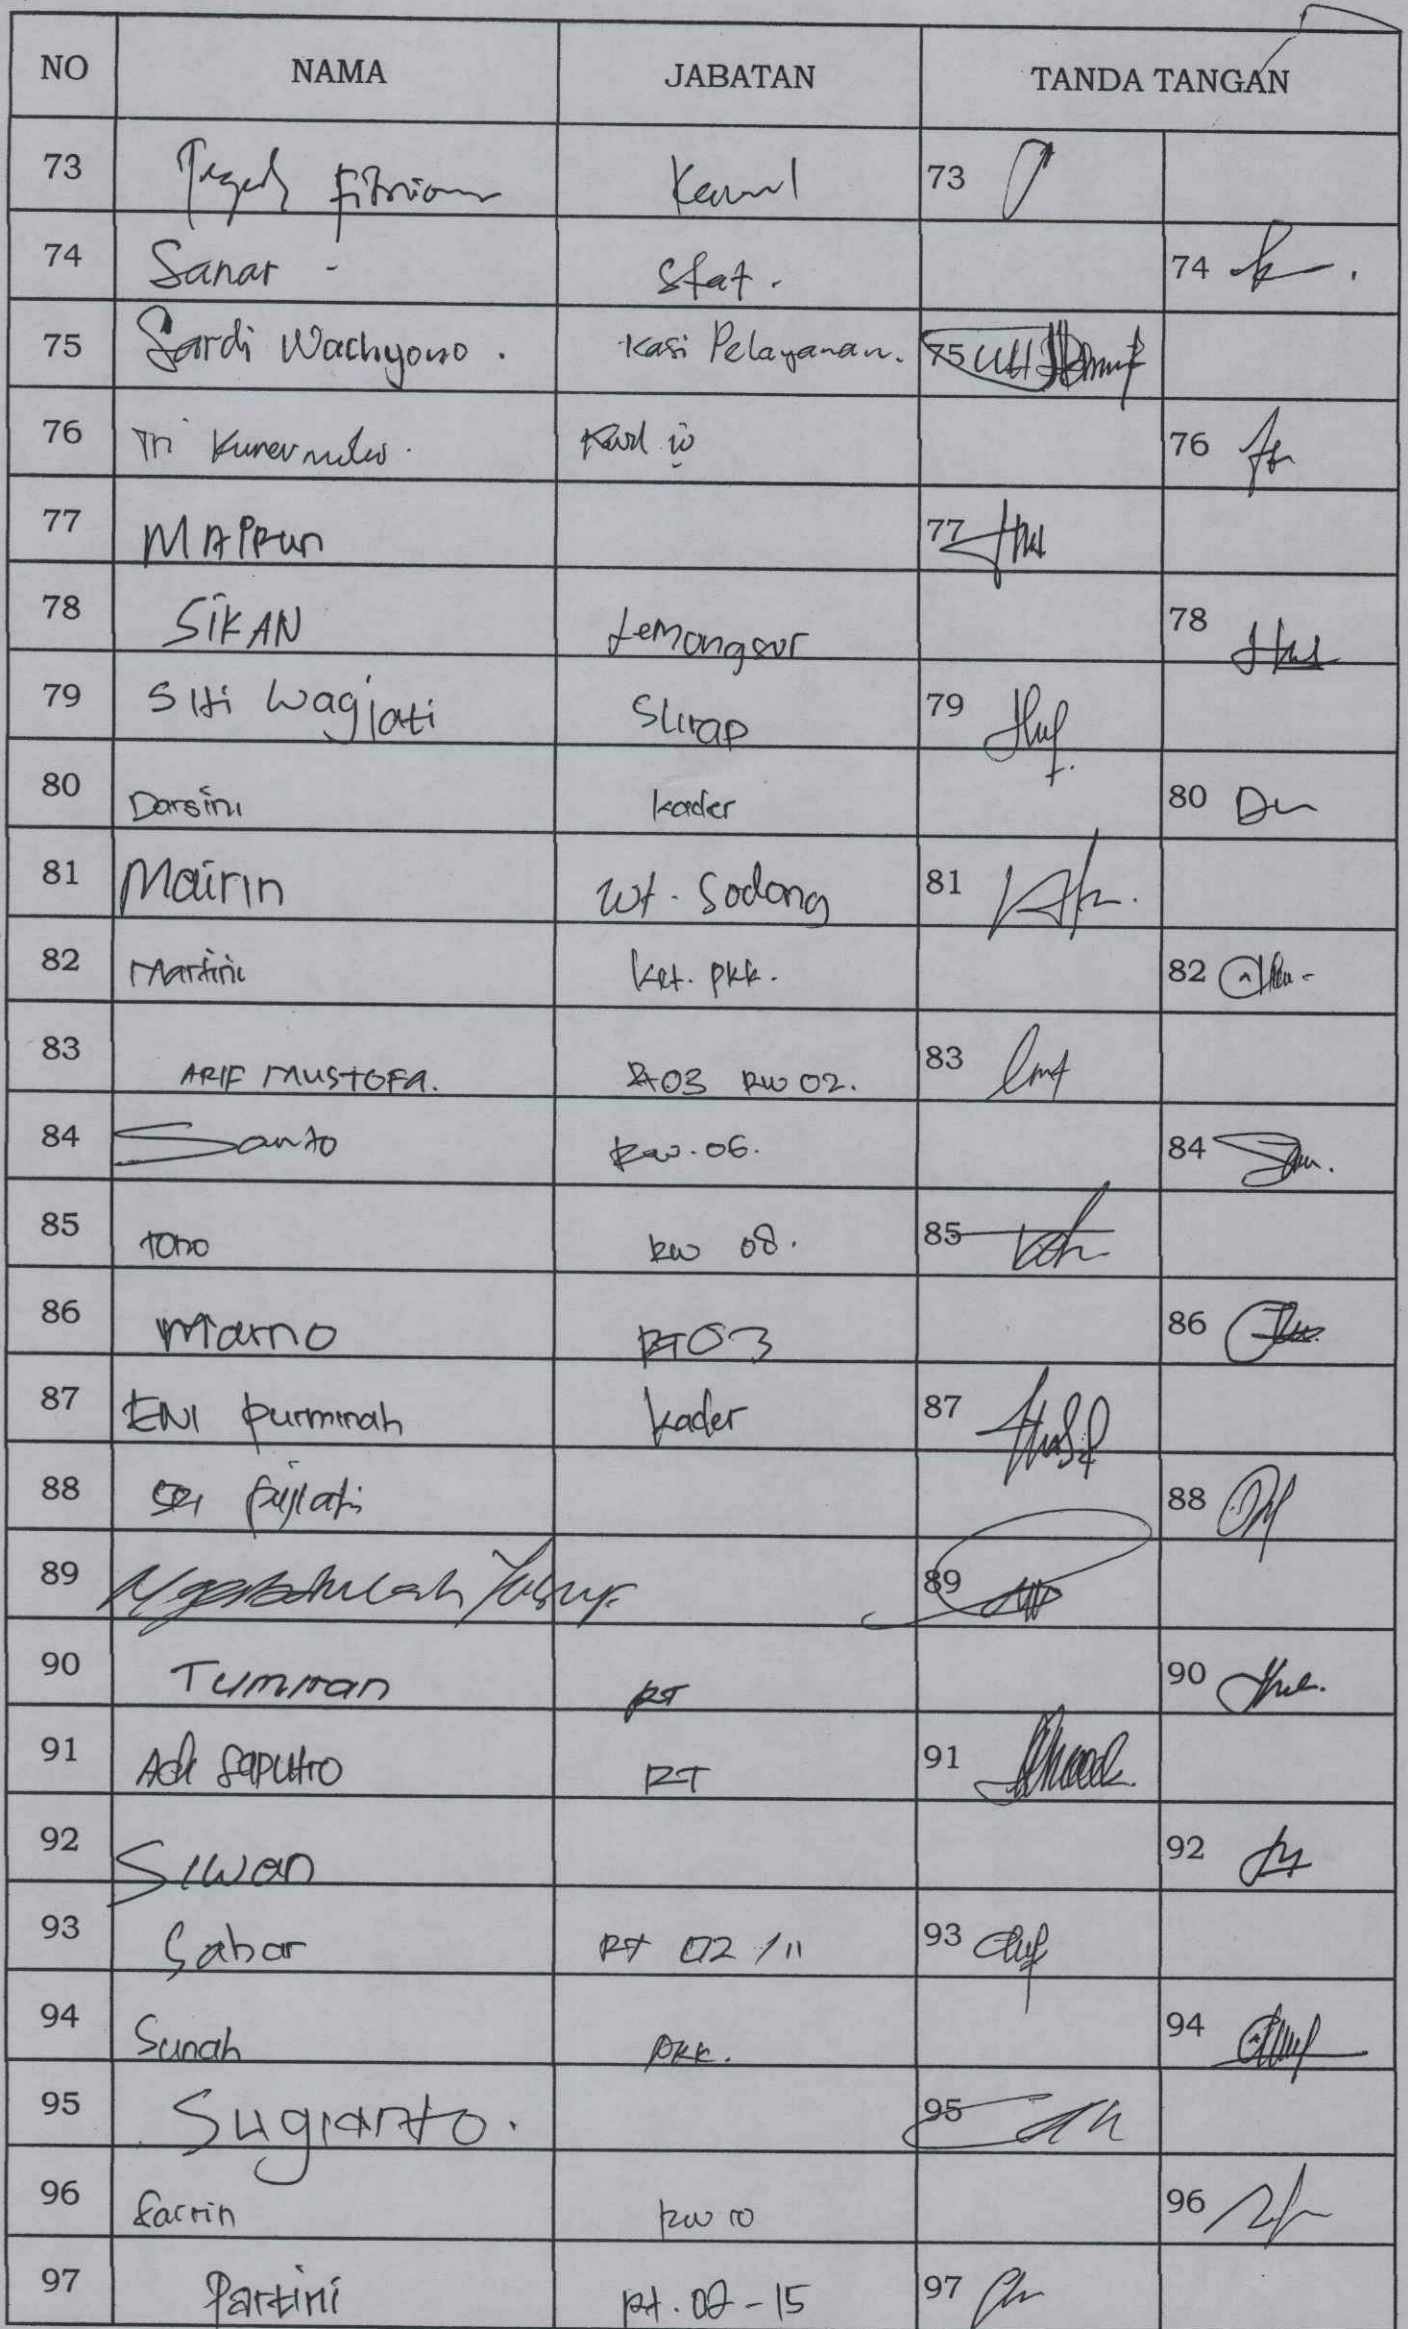 NO NAMA JABATAN TANDA TANGAN
73 Fitriana 73
74 Sanar - Staf. 74
75 Sardi Wachyono. Kasi Pelayanan. 75
76 Tri 76
77 MAIRUN 77
78 SIKAN 78
79 Siti Wagiati Slirap 79
80 Darsini kader 80
81 Mairin wt. Sodong 81
82 Martini ket. pkk. 82
83 ARIF MUSTOFA. RT03 RW 02. 83
84 Santo RW. 06. 84
85 Tono RW 08. 85
86 Marno RT 03 86
87 ENI purminah kader 87
88 Sri pujiati 88
89 89
90 Tumiran RT 90
91 Adi Saputro RT 91
92 SIWAN 92
93 Sabar RT 02 / 11 93
94 Sunah PKK. 94
95 Sugianto. 95
96 RW 10 96
97 Partini 97